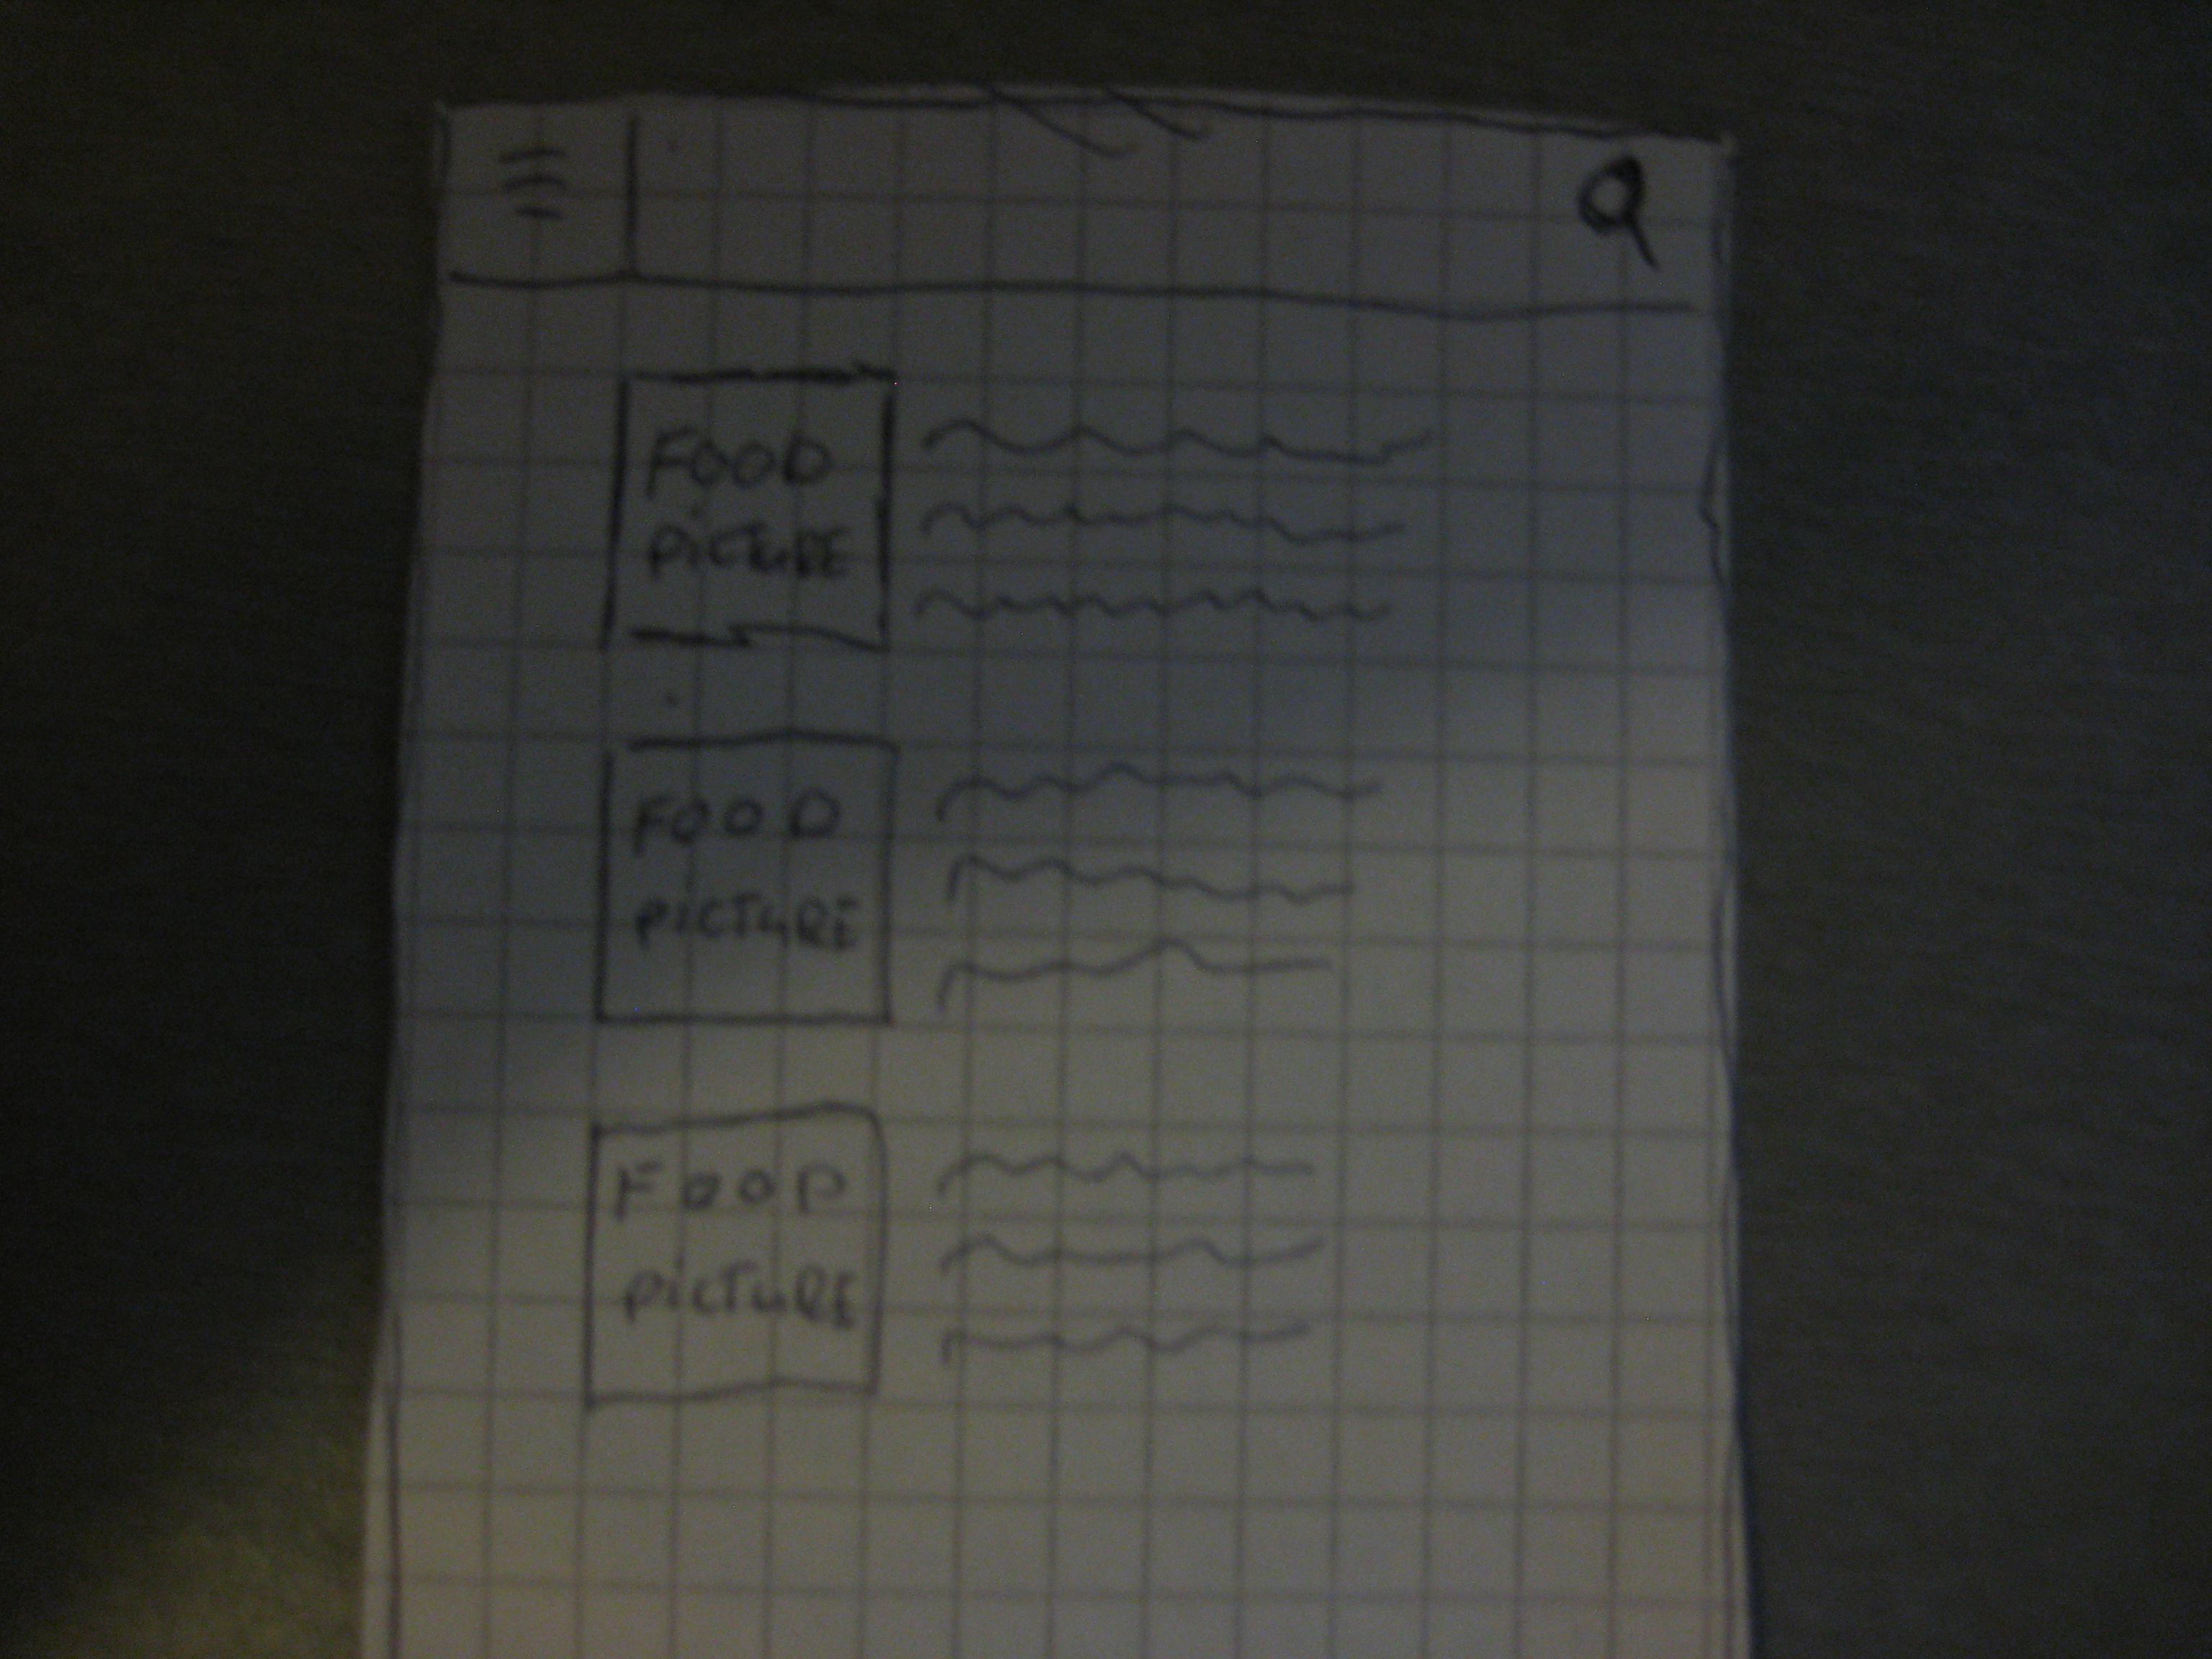 FOOD
PICTURE
FOOD
PICTURE
FOOD
PICTURE